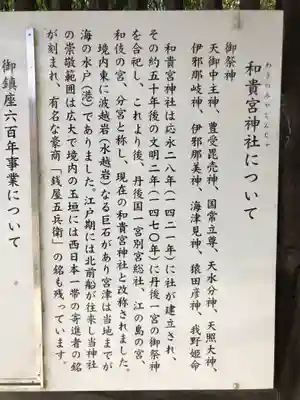 和貴宮神社について
わきのみやじんじゃ
御祭神
天御中主神、豊受毘売神、国常立尊、天水分神、天照大神、
伊邪那岐神、伊邪那美神、海津見神、猿田彦神、我野姫命
和貴宮神社は応永二八年(一四二一年)に社が建立され、
その約五十年後の文明二年(一四七〇年)に丹後一宮の御祭神
を合祀し、これより後、丹後国一宮別宮総社、江の島の宮、
和伎の宮、分宮と称し、現在の和貴宮神社と改称されました。
境内東に波越岩(水越岩)なる巨石があり宮津は当地までが
海の水戸(港)でありました。江戸期には北前船が往来し当神社
の崇敬範囲は広大で境内の玉垣には西日本一帯の寄進者の銘
が刻まれ、有名な豪商「銭屋五兵衛」の銘も残っています。
御鎮座六百年事業について